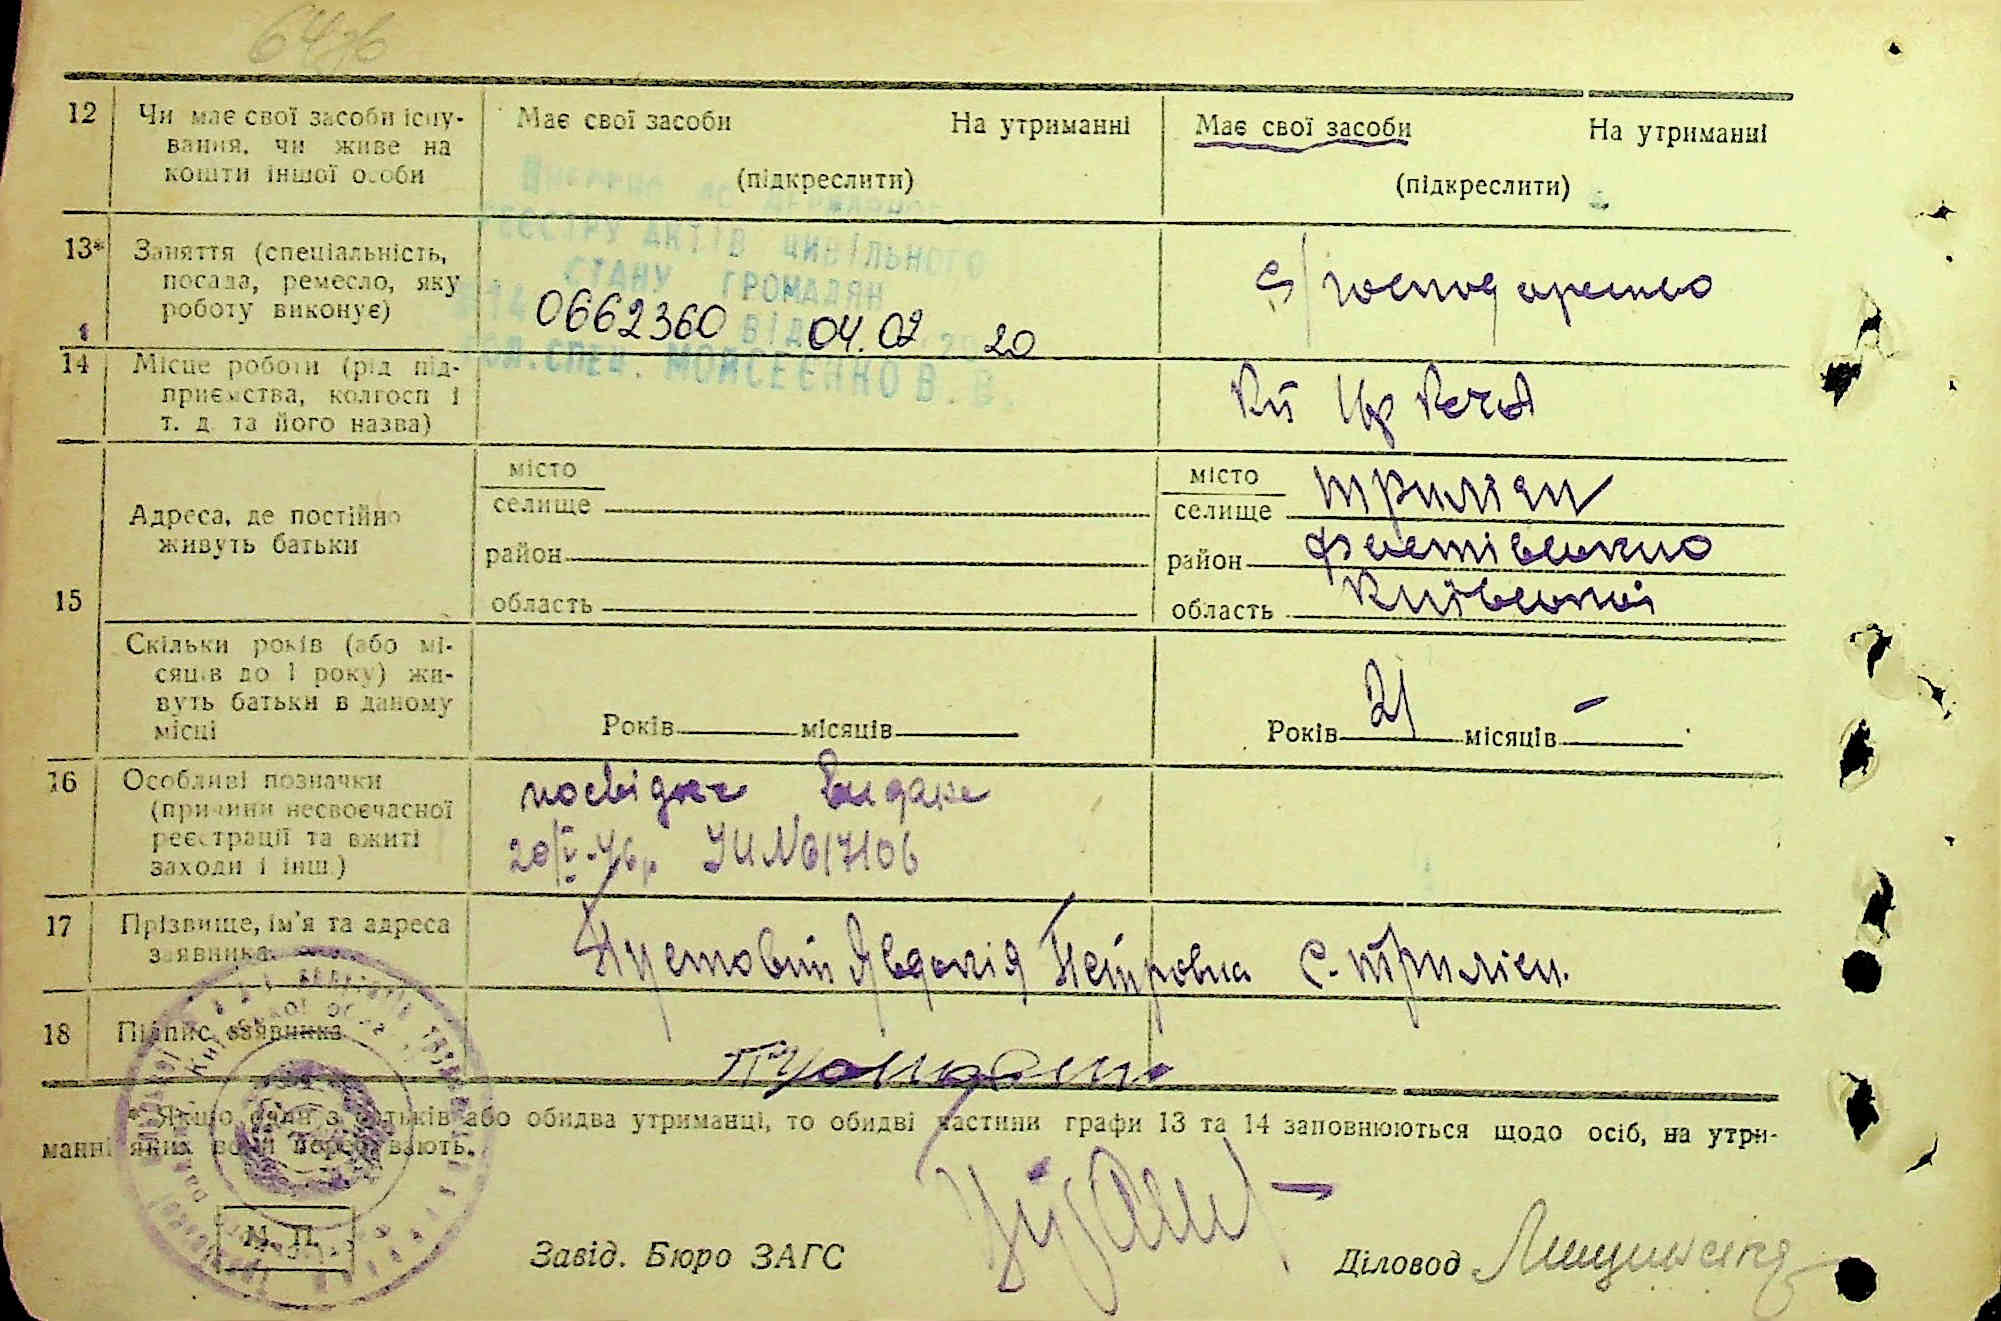 12
Чи має свої засоби існу-
вання, чи живе на
кошти іншої особи
Має свої засоби На утриманні
(підкреслити)
Має свої засоби На утриманні
(підкреслити)
ВНЕСЕНО ДО ДЕРЖАВНОГО
РЕЄСТРУ АКТІВ ЦИВІЛЬНОГО
СТАНУ ГРОМАДЯН
0662360 ВІД 04.02 2020
ГОЛ.СПЕЦ. МОЙСЕЄНКО В. В.
13*
Заняття (спеціальність,
посада, ремесло, яку
роботу виконує)
с/господарство
14
Місце роботи (рід під-
приємства, колгосп і
т. д. та його назва)
15
Адреса, де постійно
живуть батьки
місто
селище
район
область
місто
селище Триліси
район Фастівського
область Київської
Скільки років (або мі-
сяців до 1 року) жи-
вуть батьки в даному
місці
Років місяців
Років 21 місяців –
16
Особливі позначки
(причини несвоєчасної
реєстрації та вжиті
заходи і інш.)
посвідч видане
20/V-46р
17
Прізвище, ім'я та адреса
заявника
Пустовий Явдокія Петровна с. Триліси.
18
Підпис заявника
* Якщо один з батьків або обидва утриманці, то обидві частини графи 13 та 14 заповнюються щодо осіб, на утри-
манні яких вони перебувають.
М. П.
Завід. Бюро ЗАГС
Діловод